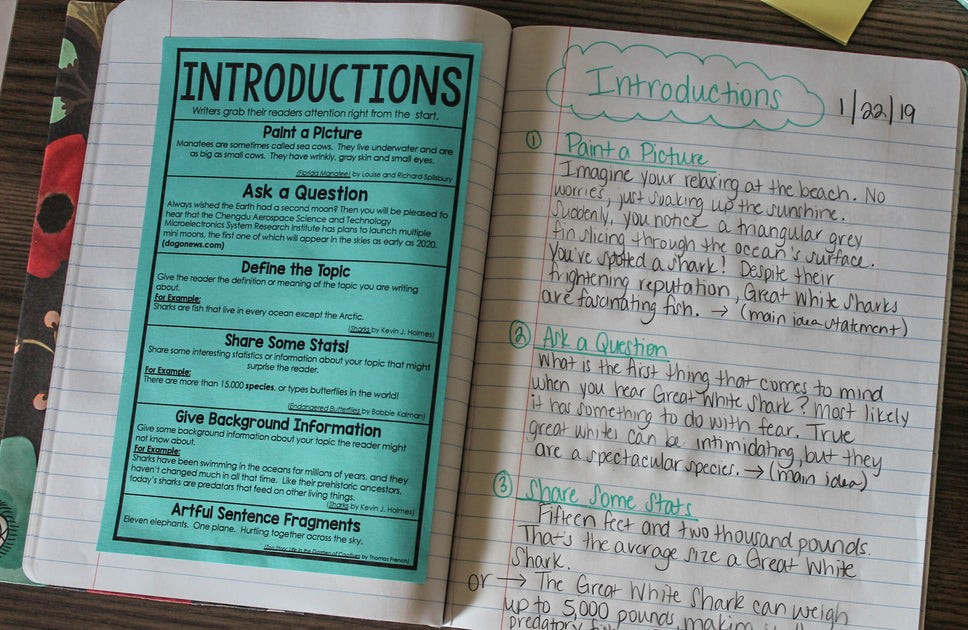 INTRODUCTIONS
Writers grab their readers attention right from the start.
Paint a Picture
Manatees are sometimes called sea cows. They live underwater and are
as big as small cows. They have wrinkly, gray skin and small eyes.
(Florida Manatee) by Louise and Richard Spilsbury
Ask a Question
Always wished the Earth had a second moon? Then you will be pleased to
hear that the Chengdu Aerospace Science and Technology
Microelectronics System Research Institute has plans to launch multiple
mini moons, the first one of which will appear in the skies as early as 2020.
(dogonews.com)
Define the Topic
Give the reader the definition or meaning of the topic you are writing
about.
For Example:
Sharks are fish that live in every ocean except the Arctic.
(Sharks by Kevin J. Holmes)
Share Some Stats!
Share some interesting statistics or information about your topic that might
surprise the reader.
For Example:
There are more than 15,000 species, or types butterflies in the world!
(Endangered Butterflies by Bobbie Kalman)
Give Background Information
Give some background information about your topic the reader might
not know about.
For Example:
Sharks have been swimming in the oceans for millions of years, and they
haven't changed much in all that time. Like their prehistoric ancestors,
today's sharks are predators that feed on other living things.
(Sharks by Kevin J. Holmes)
Artful Sentence Fragments
Eleven elephants. One plane. Hurtling together across the sky.
(Zoo Story: Life in the Garden of Captives by Thomas French)
Introductions
1/22/19
① Paint a Picture
Imagine your relaxing at the beach. No
worries, just soaking up the sunshine.
Suddenly, you notice a triangular grey
fin slicing through the ocean's surface.
You've spotted a shark! Despite their
frightening reputation, Great White Sharks
are fascinating fish. → (main idea statement)
② Ask a Question
What is the first thing that comes to mind
when you hear Great White Shark? Most likely
it has something to do with fear. True
great whites can be intimidating, but they
are a spectacular species. → (main idea)
③ Share Some Stats
Fifteen feet and two thousand pounds.
That's the average size a Great White
Shark.
or → The Great White Shark can weigh
up to 5,000 pounds, making
predatory